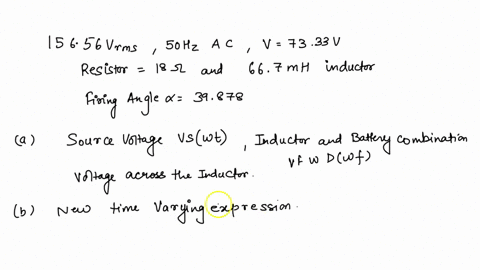 156.56Vrms , 50Hz AC , V = 73.33V
Resistor = 18Ω and 66.7 mH inductor
Firing Angle α = 39.878
(a) Source Voltage VS(wt) , Inductor and Battery combination
VF W D(wf)
Voltage across the Inductor.
(b) New time Varying expression.